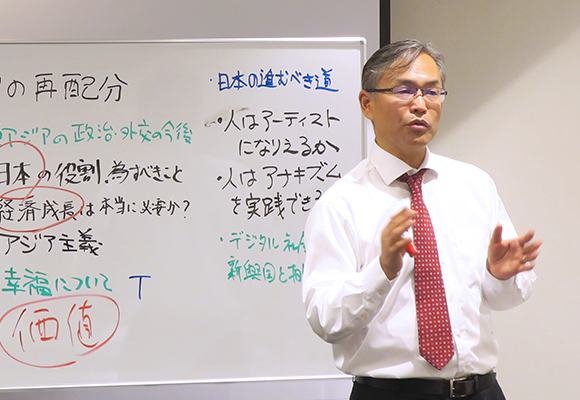 の再配分
アジアの政治・外交の今後
日本の役割、為すべきこと
経済成長は本当に必要か？
アジア主義
幸福について
T
価値
・日本の進むべき道
・人はアーティスト
になりえるか
・人はアナキズム
を実践でき
・デジタル
新興国と